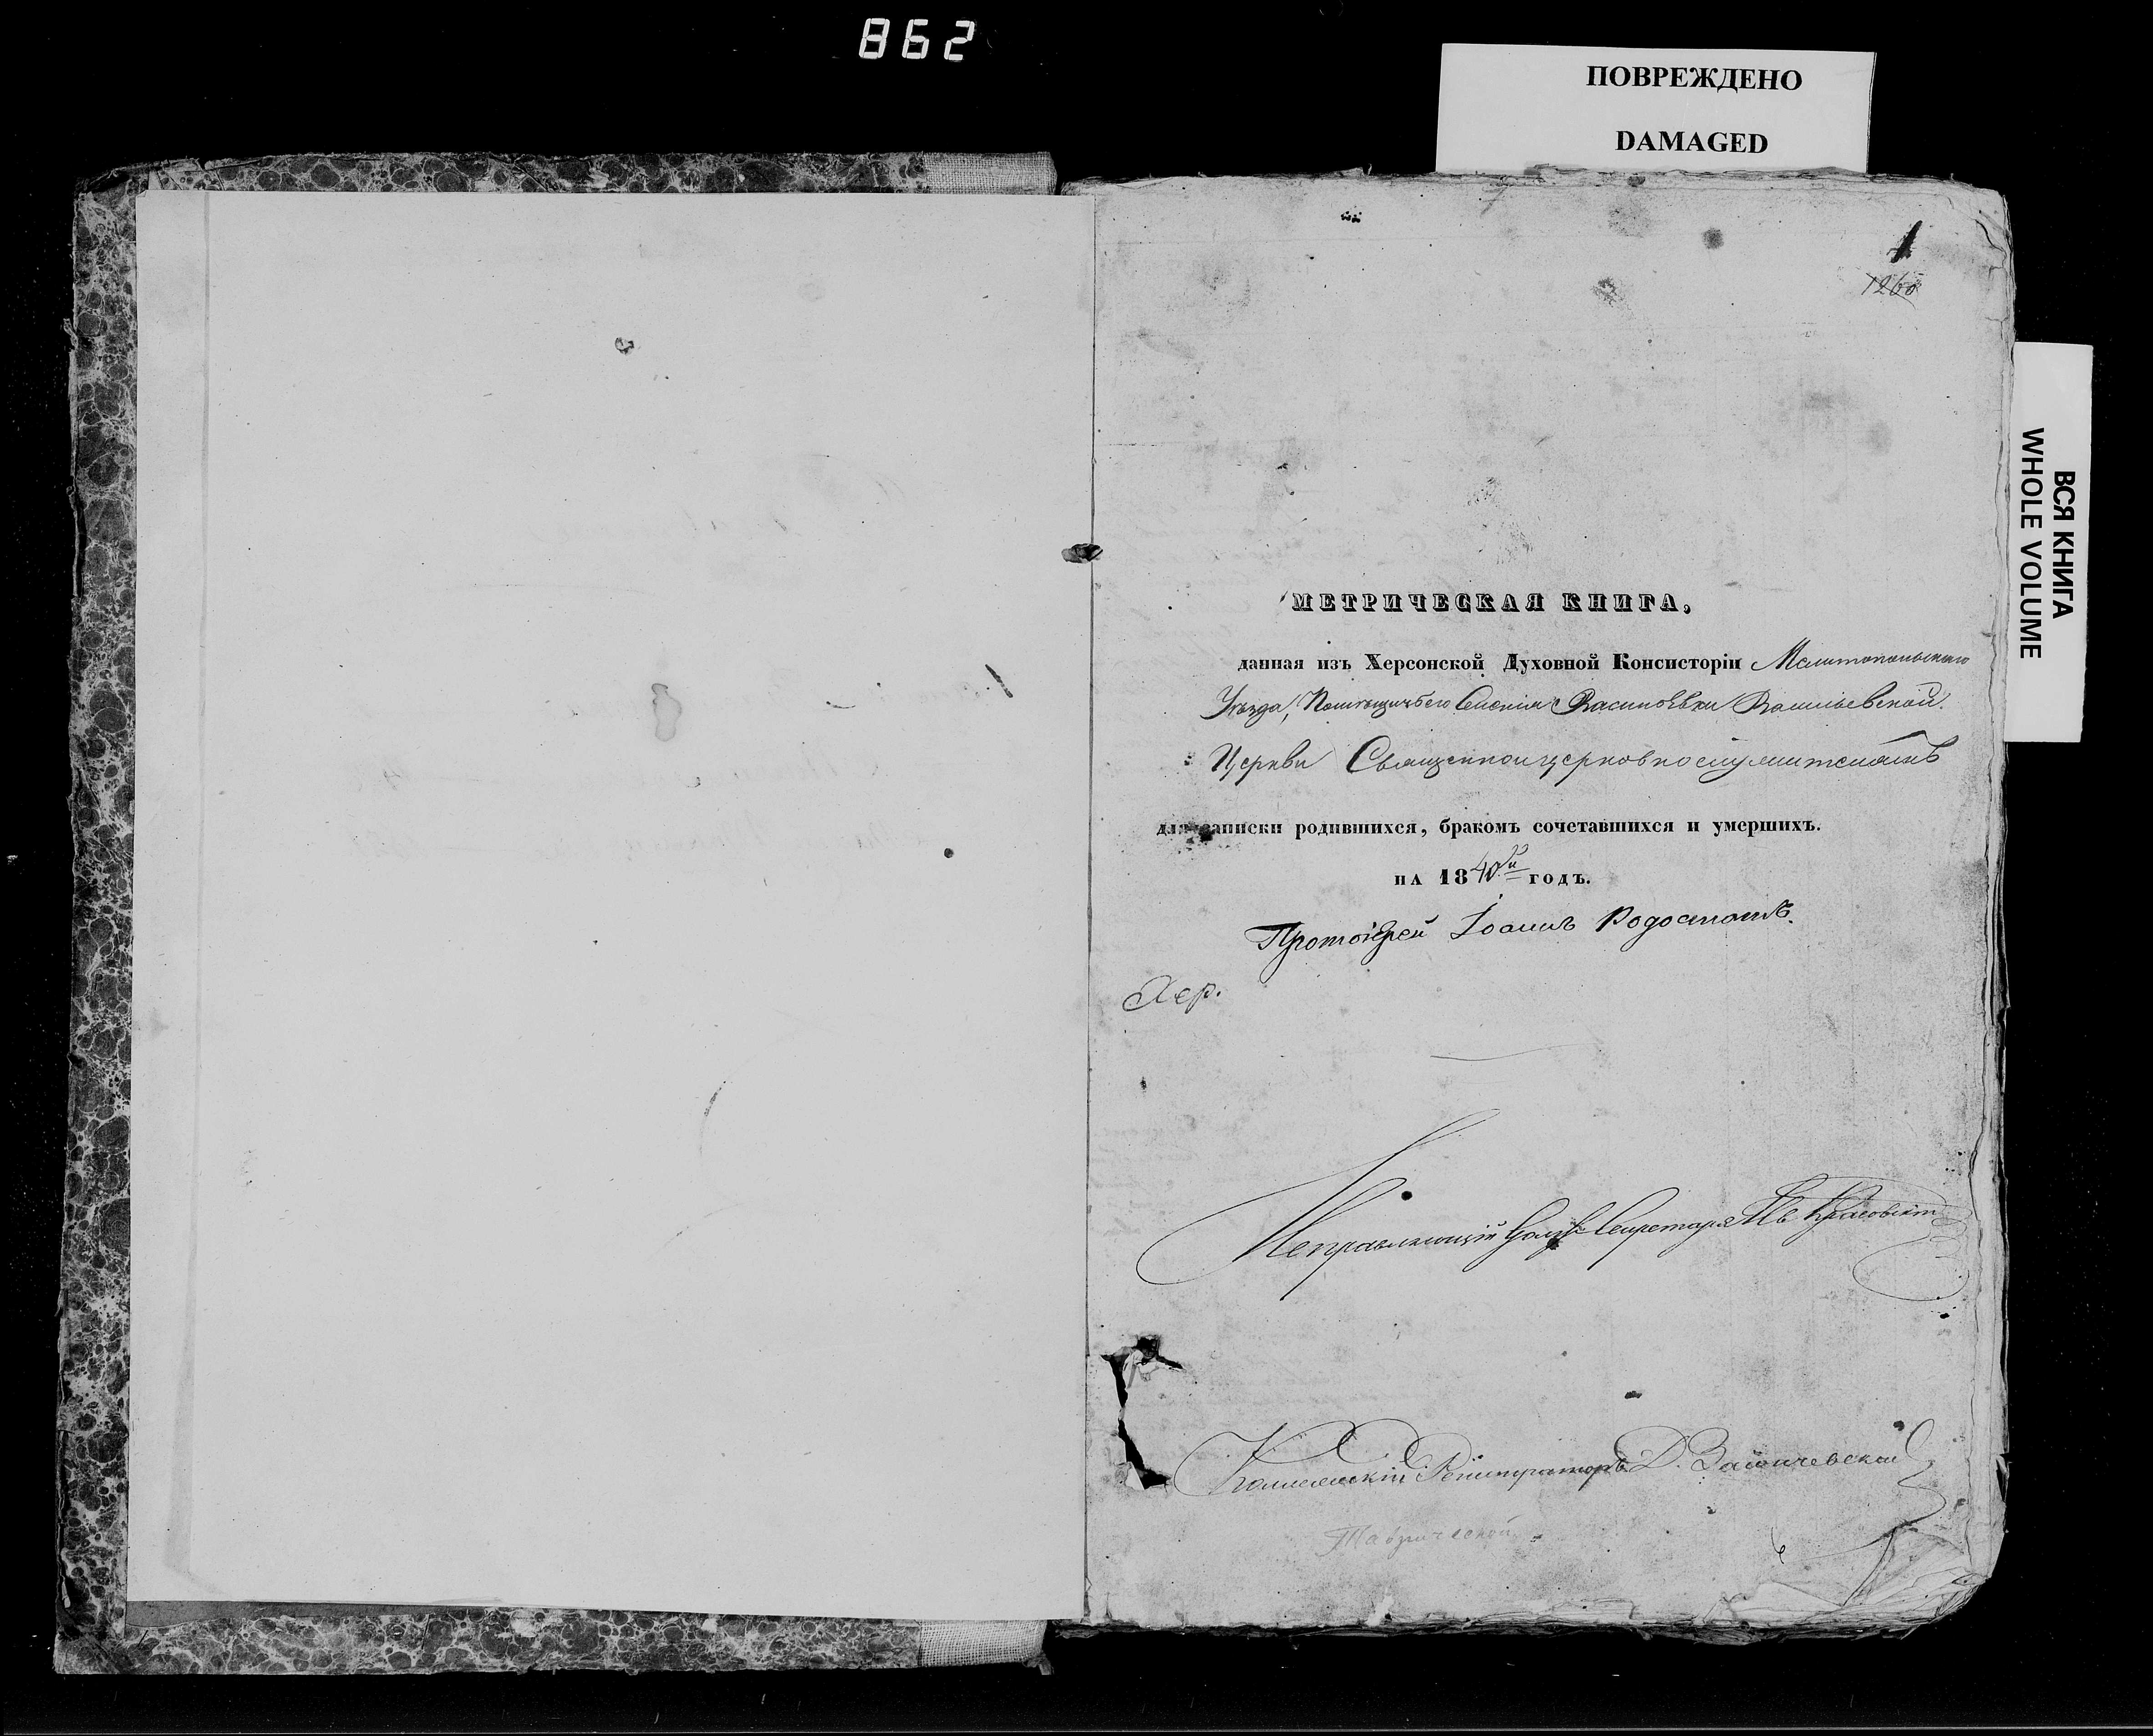 862
ПОВРЕЖДЕНО
DAMAGED
1
1260
ВСЯ КНИГА
WHOLE VOLUME
МЕТРИЧЕСКАЯ КНИГА,
данная изъ Херсонской Духовной Консисторіи Мелитопольскаго
Уѣзда, Помѣщичьего Селенія Васильевки Васильевской
Церкви Священноицерковнослужителямъ
для записки родившихся, бракомъ сочетавшихся и умершихъ.
на 1840й годъ.
Протоіерей Іоаннъ Родостатъ.
Хер.
Исправляющій Должн. Секретаря
Коллежскій Регистраторъ Д.
Таврической